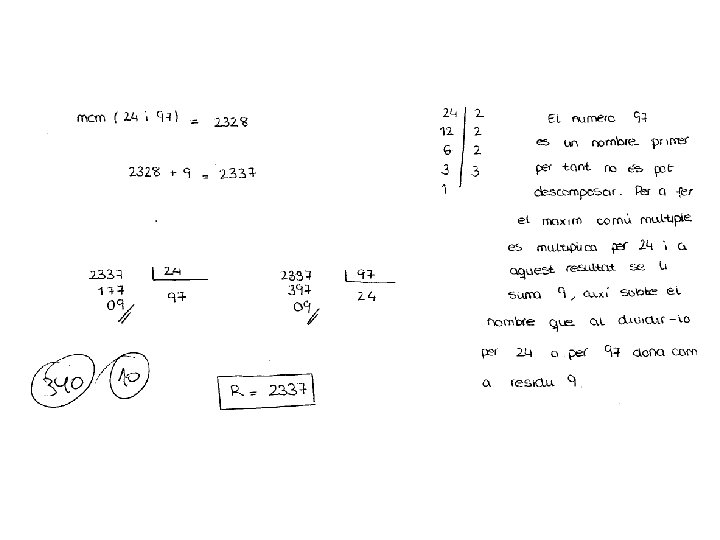 mcm (24 i 97) = 2328
2328 + 9 = 2337
2337 24
177 97
09
2337 97
397 24
09
340 10
R = 2337
24 2
12 2
6 2
3 3
1
El numero 97
es un nombre primer
per tant no es pot
descomposar. Per a fer
el maxim comú multiple
es multiplica per 24 i a
aquest resultat se li
suma 9, auxí sobte el
nombre que al dividir-lo
per 24 o per 97 dona com
a residu 9.